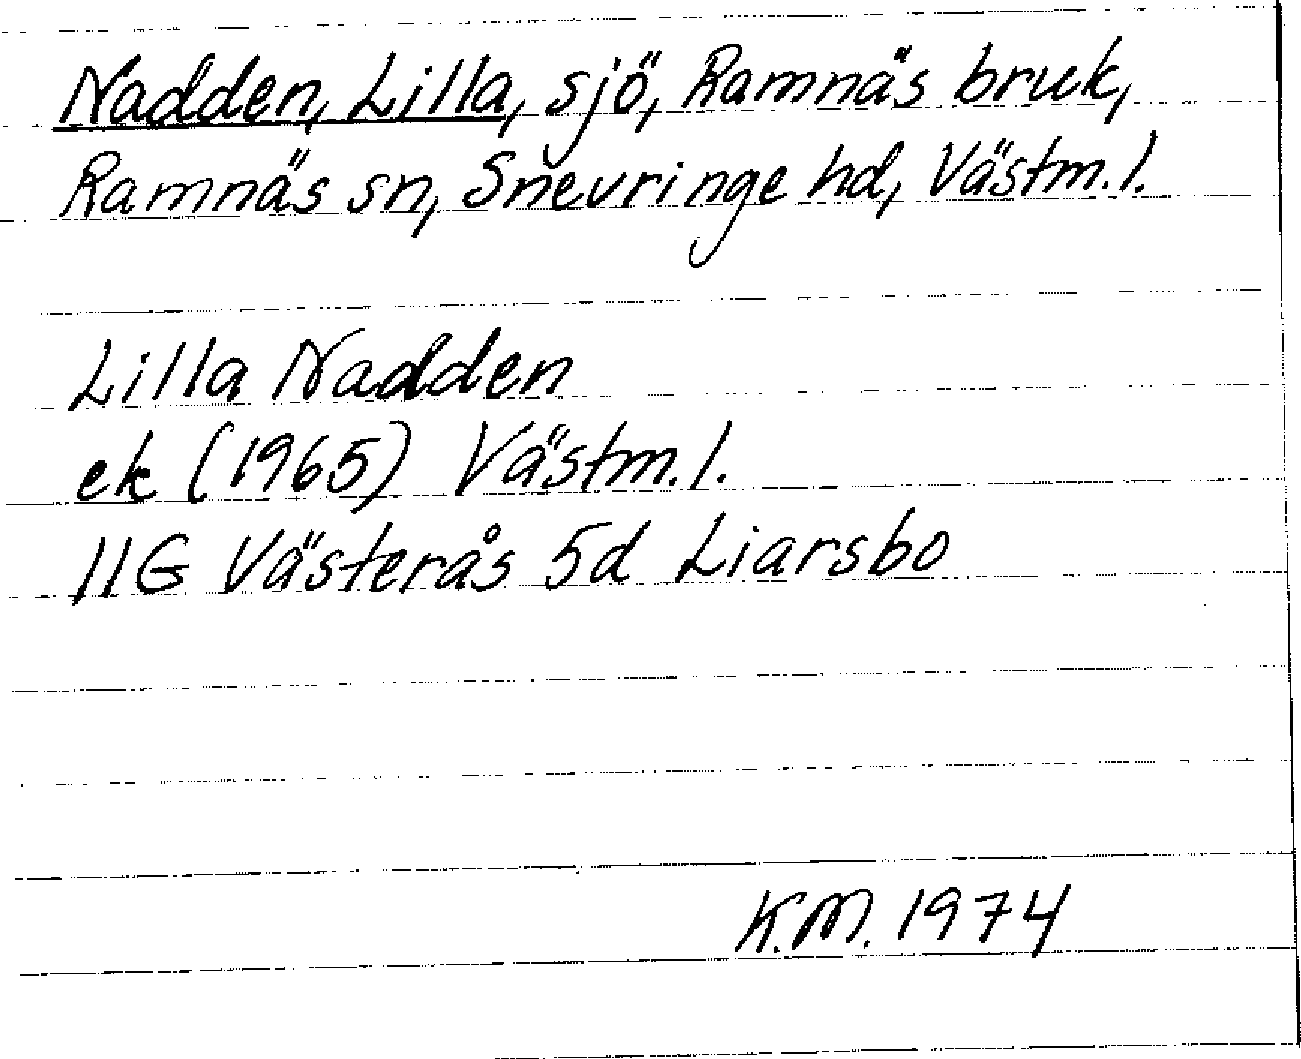 Nadden, Lilla, sjö, Ramnäs bruk,
Ramnäs sn, Snevringe hd, Västm. l.
Lilla Nadden
ek (1965) Västm. l.
11G Västerås 5d Liarsbo
K.M. 1974